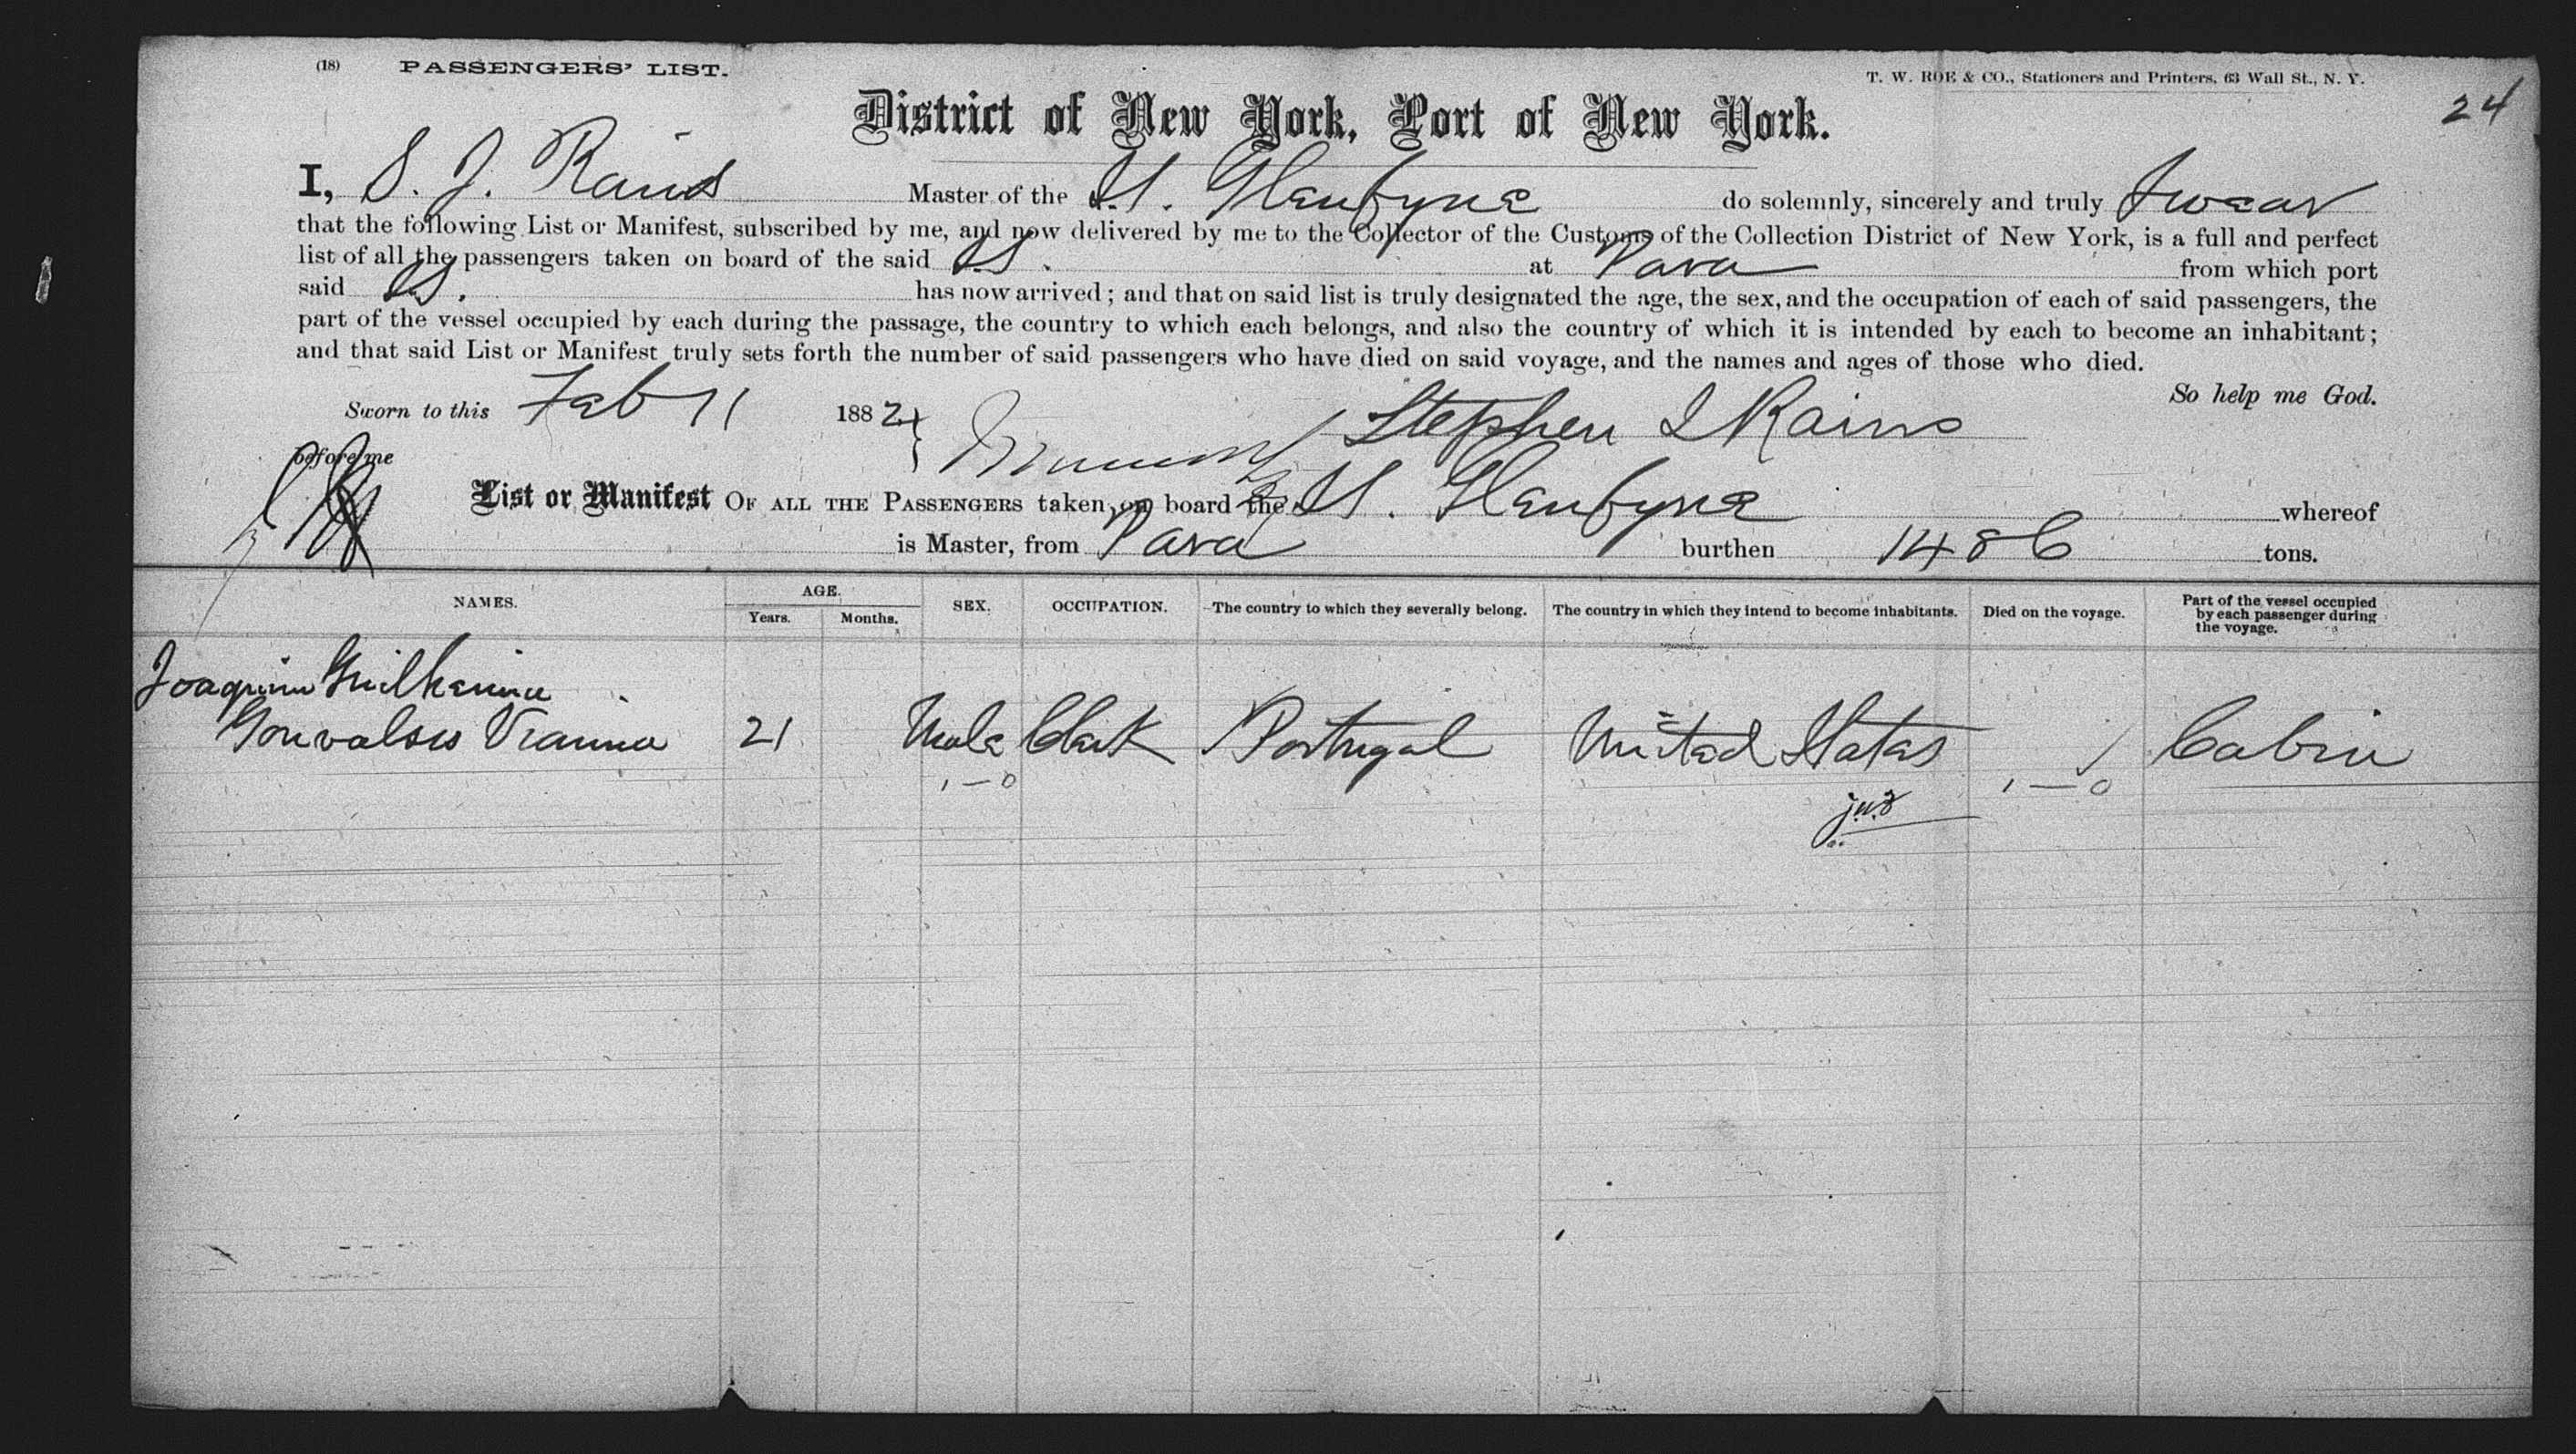 (18) PASSENGERS' LIST.
T. W. ROE & CO., Stationers and Printers, 63 Wall St., N. Y.
24
District of New York, Port of New York.
I, S. J. Rains Master of the SS. Glenfyne do solemnly, sincerely and truly Swear
that the following List or Manifest, subscribed by me, and now delivered by me to the Collector of the Customs of the Collection District of New York, is a full and perfect
list of all the passengers taken on board of the said SS. at Para from which port
said SS. has now arrived; and that on said list is truly designated the age, the sex, and the occupation of each of said passengers, the
part of the vessel occupied by each during the passage, the country to which each belongs, and also the country of which it is intended by each to become an inhabitant;
and that said List or Manifest truly sets forth the number of said passengers who have died on said voyage, and the names and ages of those who died.
So help me God.
Sworn to this Feb 11 1882 Stephen J Rains
before me
List or Manifest OF ALL THE PASSENGERS taken on board the SS. Glenfyne whereof
is Master, from Para burthen 1486 tons.
NAMES. AGE. Years. Months. SEX. OCCUPATION. The country to which they severally belong. The country in which they intend to become inhabitants. Died on the voyage. Part of the vessel occupied by each passenger during the voyage.
Joaquim Guilherme
Gonvalses Vianna 21 Male Clerk Portugal United States Cabin